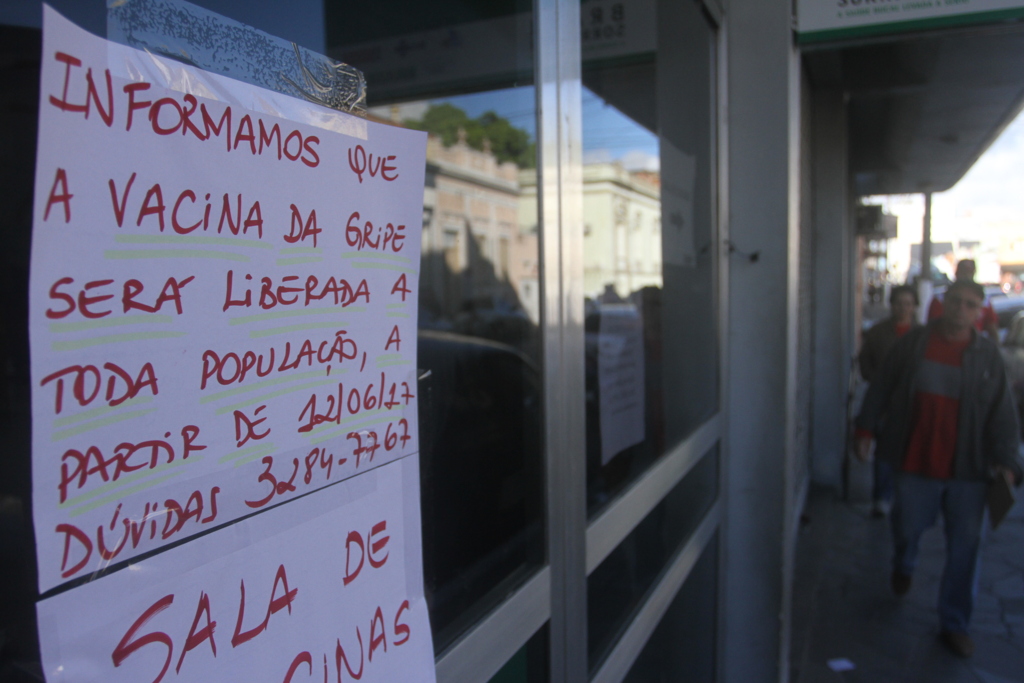 INFORMAMOS QUE
A VACINA DA GRIPE
SERÁ LIBERADA A
TODA POPULAÇÃO, A
PARTIR DE 12/06/17
DÚVIDAS 3284-7767
SALA DE